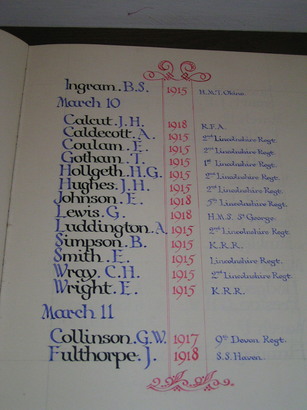 Ingram. B.S. 1915 H.M.T. Okino
March 10
Calcut. J.H. 1918 R.F.A.
Caldecott. A. 1915 2nd Lincolnshire Regt.
Coulan. E. 1915 2nd Lincolnshire Regt.
Gotham. T. 1915 1st Lincolnshire Regt.
Hollgeth. H.G. 1915 2nd Lincolnshire Regt.
Hughes. J.H. 1915 2nd Lincolnshire Regt.
Johnson. E. 1918 5th Lincolnshire Regt.
Lewis. G. 1918 H.M.S. St George.
Luddington. A. 1915 2nd Lincolnshire Regt.
Simpson. B. 1915 K.R.R.
Smith. E. 1915 Lincolnshire Regt.
Wray. C.H. 1915 2nd Lincolnshire Regt.
Wright. E. 1915 K.R.R.
March 11
Collinson. G.W. 1917 9th Devon Regt.
Fulthorpe. J. 1918 S.S. Haven